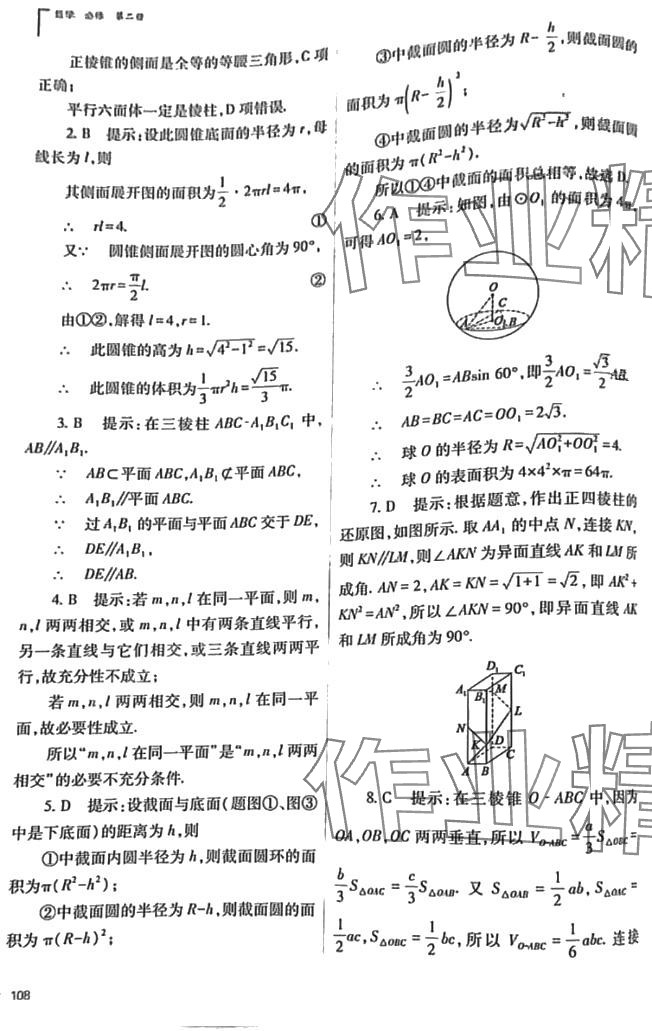 数学 必修 第二册
正棱锥的侧面是全等的等腰三角形,C项
正确;
平行六面体一定是棱柱,D项错误.
2. B 提示:设此圆锥底面的半径为r,母
线长为l,则
其侧面展开图的面积为1/2·2πrl=4π,
∴ rl=4. ①
又∵ 圆锥侧面展开图的圆心角为90°,
∴ 2πr=π/2 l. ②
由①②,解得l=4,r=1.
∴ 此圆锥的高为h=√(4²-1²)=√15.
∴ 此圆锥的体积为1/3πr²h=√15/3 π.
3. B 提示:在三棱柱ABC-A₁B₁C₁中,
AB∥A₁B₁.
∵ AB⊂平面ABC,A₁B₁⊄平面ABC,
∴ A₁B₁∥平面ABC.
∵ 过A₁B₁的平面与平面ABC交于DE,
∴ DE∥A₁B₁,
∴ DE∥AB.
4. B 提示:若m,n,l在同一平面,则m,
n,l两两相交,或m,n,l中有两条直线平行,
另一条直线与它们相交,或三条直线两两平
行,故充分性不成立;
若m,n,l两两相交,则m,n,l在同一平
面,故必要性成立.
所以“m,n,l在同一平面”是“m,n,l两两
相交”的必要不充分条件.
5. D 提示:设截面与底面(题图①、图③
中是下底面)的距离为h,则
①中截面内圆半径为h,则截面圆环的面
积为π(R²-h²);
②中截面圆的半径为R-h,则截面圆的面
积为π(R-h)²;
108
③中截面圆的半径为R-h/2,则截面圆的
面积为π(R-h/2)²;
④中截面圆的半径为√(R²-h²),则截面圆
的面积为π(R²-h²).
所以①④中截面的面积总相等,故选D.
6. A 提示:如图,由⊙O₁的面积为4π,
可得AO₁=2,
O
C
A O₁ B
∴ 3/2 AO₁=ABsin 60°,即3/2 AO₁=√3/2 AB.
∴ AB=BC=AC=OO₁=2√3.
∴ 球O的半径为R=√(AO₁²+OO₁²)=4.
∴ 球O的表面积为4×4²×π=64π.
7. D 提示:根据题意,作出正四棱柱的
还原图,如图所示.取AA₁的中点N,连接KN,
则KN∥LM,则∠AKN为异面直线AK和LM所
成角. AN=2,AK=KN=√(1+1)=√2,即AK²+
KN²=AN²,所以∠AKN=90°,即异面直线AK
和LM所成角为90°.
D₁ C₁
A₁ B₁ M
L
N
K D
C
A B
8. C 提示:在三棱锥O-ABC中,因为
OA,OB,OC两两垂直,所以V_{O-ABC}=a/3 S_{△OBC}=
b/3 S_{△OAC}=c/3 S_{△OAB}. 又S_{△OAB}=1/2 ab,S_{△OAC}=
1/2 ac,S_{△OBC}=1/2 bc,所以V_{O-ABC}=1/6 abc. 连接
作业精
作业精